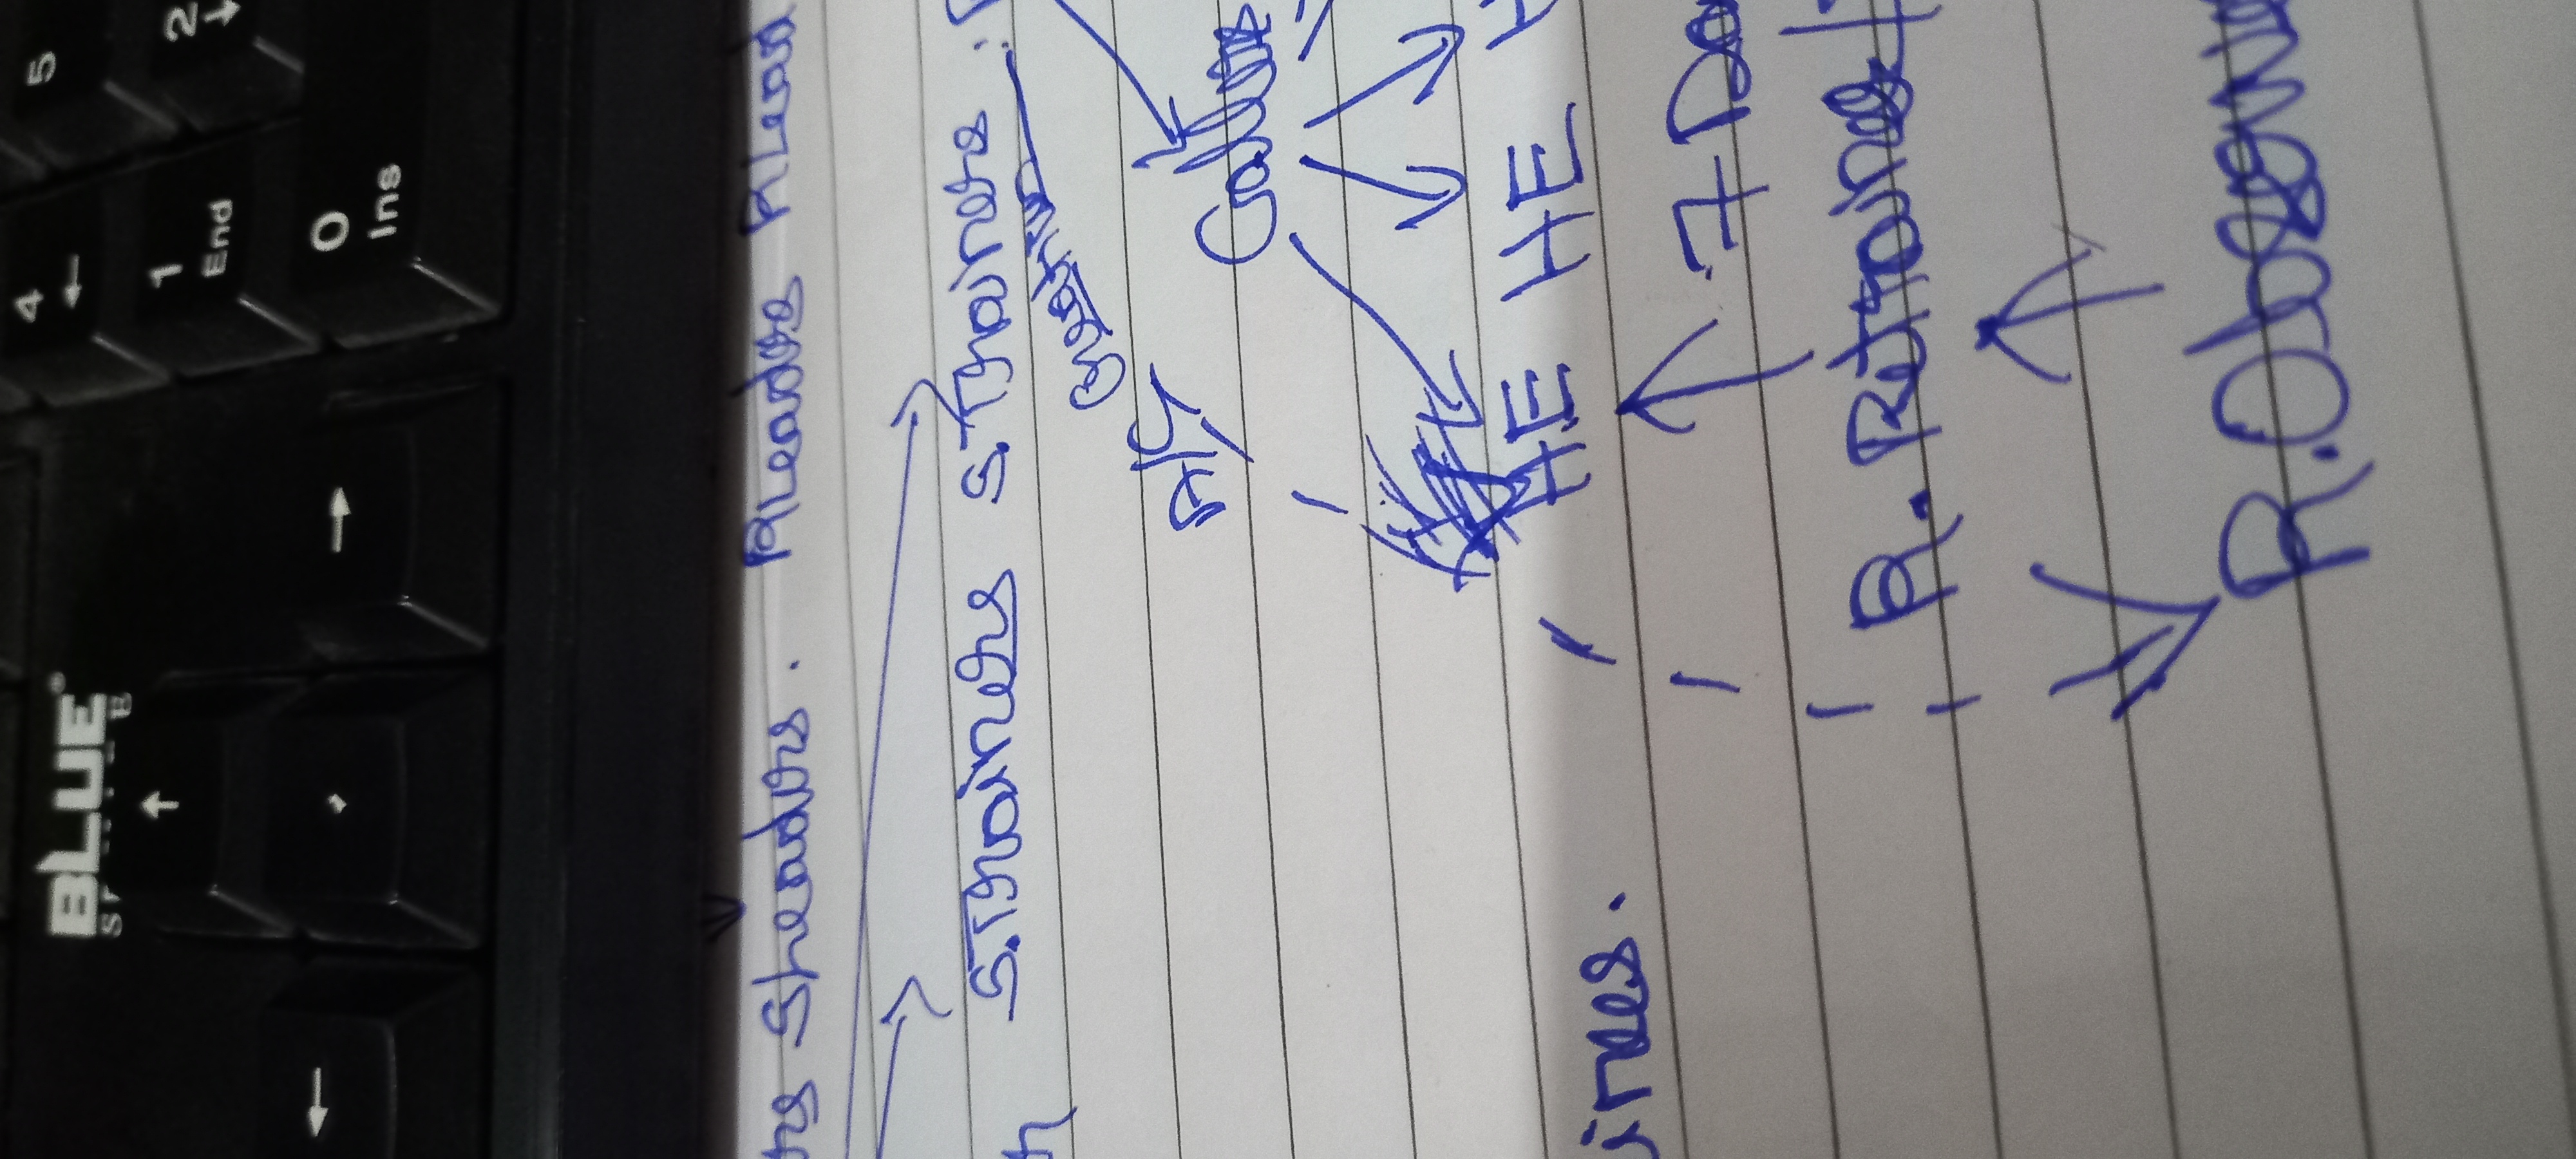 BLUE
4
5
1
End
2
0
Ins
SLeaders. RLeaders RLead
S.Trainers S.Trainers
A/C Creation
Callers
HE HE H
inees.
7 Da
R. Retrainee/
R.Observe